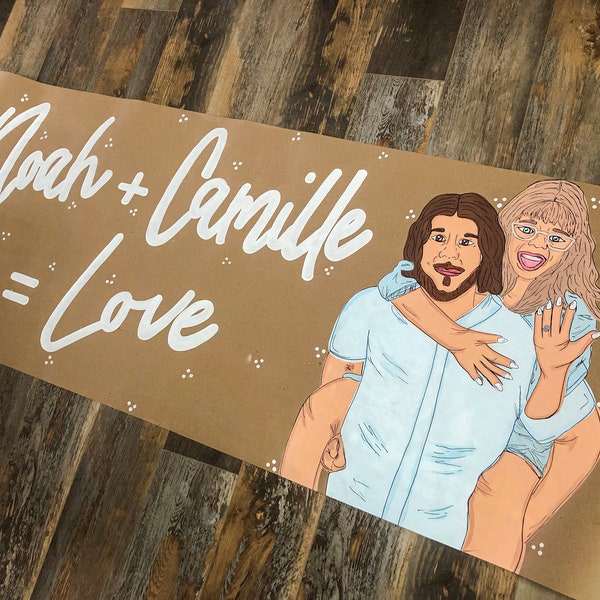 Noah + Camille
= Love